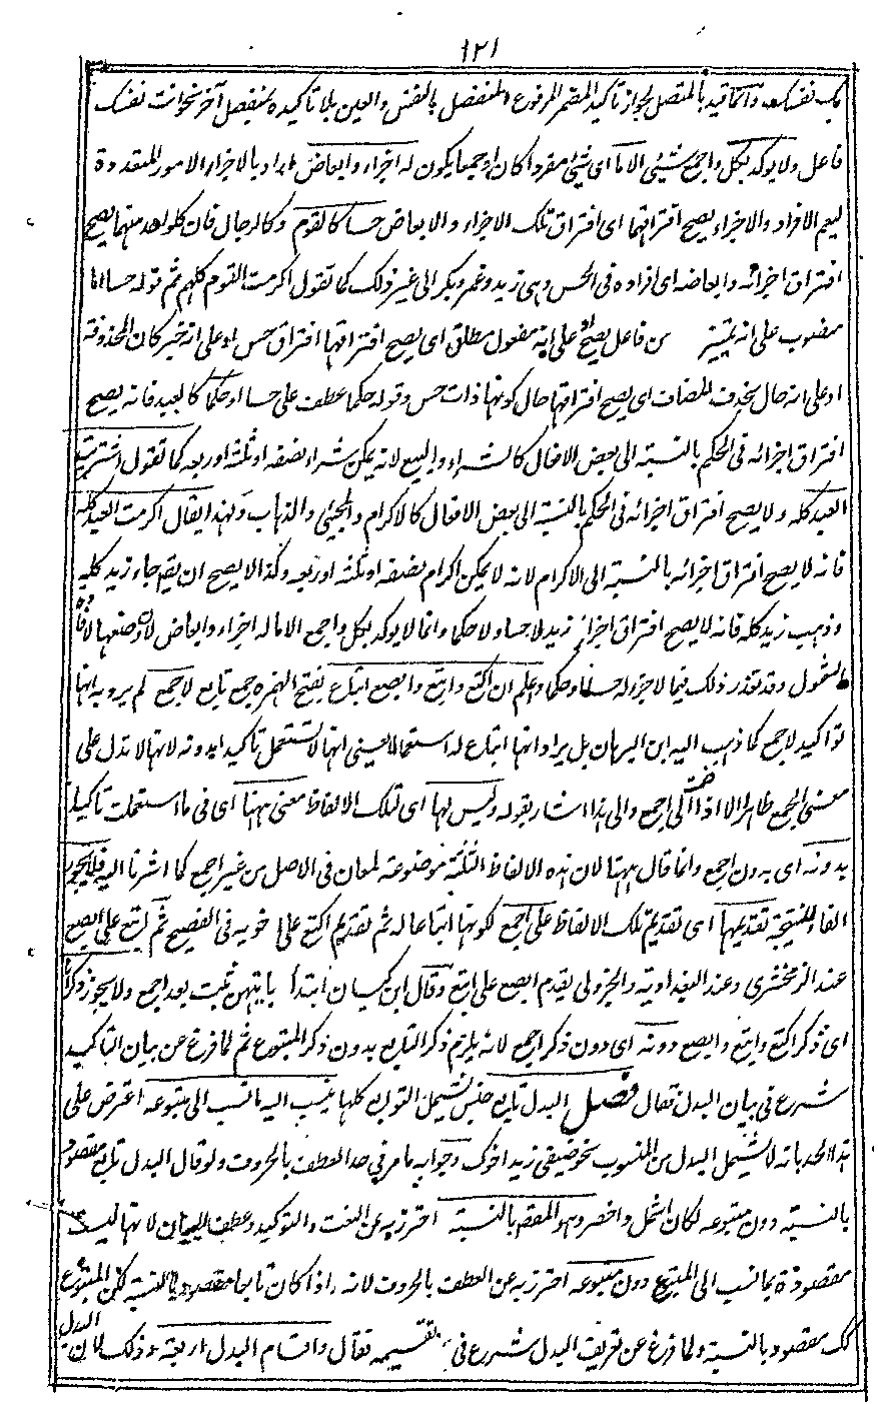 ١٢١
بك نفسك وانما قيد بالمتصل لجواز تاكيد المضمر المرفوع المنفصل بالنفس والعين بلا تاكيده بمنفصل آخر نحو انت نفسك
فاعل ولا يوكد بكل واجمع شيئى الا ما اى شئ مفردا كان او جمعا يكون له اجزاء وابعاض اراد بالاجزاء الامور المتعددة
ليعم الافراد والاجزاء يصح افتراقها اى افتراق تلك الاجزاء والابعاض حسا كالقوم وكالرجال فان كلو احد منهما يصح
افتراق اجزائه وابعاضه اى افراده فى الحس وهى زيد وعمرو وبكر الى غير ذلك كما تقول اكرمت القوم كلهم ثم قوله حسا اما
منصوب على انه تمييز من فاعل يصح او على انه مفعول مطلق اى يصح افتراقها افتراق حس او على انه خبر كان المحذوفة
او على انه حال بحذف المضاف اى يصح افتراقها حال كونها ذات حس وقوله حكما عطف على حسا او حكما كالعبد فانه يصح
افتراق اجزائه فى الحكم بالنسبة الى بعض الافعال كالشراء والبيع لانه يمكن شراء نصفه او ثلثه او ربعه كما تقول اشتريت
العبد كله ولا يصح افتراق اجزائه فى الحكم بالنسبة الى بعض الافعال كالاكرام والمجيئى والذهاب ولهذا يقال اكرمت العبد كله
فانه لا يصح افتراق اجزائه بالنسبة الى الاكرام لانه لا يمكن اكرام نصفه او ثلثه او ربعه وكذا لا يصح ان يقم جاء زيد كله
وذهب زيد كله فانه لا يصح افتراق اجزاء زيد لا حسا ولا حكما وانما لا يوكد بكل واجمع الا ما له اجزاء وابعاض لان وضعهما لافادة
الشمول وقد تعذر ذلك فيما لا جزء له حسا وحكما واعلم ان اكتع وابتع وابصع اتباع بفتح الهمزة جمع تابع لاجمع لم يرو به انها
تواكيد لاجمع كما ذهب اليه ابن البرهان بل يراد انها اتباع له استعمالا يعنى انها لا تستعمل تاكيدا بدونه لانها لا تدل على
معنى الجمع ظاهرا الا اذا الى اجمع والى هذا اشار بقوله وليس لها اى لتلك الالفاظ معنى ههنا اى فى ما استعملت تاكيدا
بدونه اى بدون اجمع وانما قال ههنا لان هذه الالفاظ الثلثة موضوعة لمعان فى الاصل من غير اجمع كما اشرنا اليه فلا يجوز
الفاء للنتيجة تقديمها اى تقديم تلك الالفاظ على اجمع لكونها اتباعا له ثم تقديم اكتع على اخويه فى الفصيح ثم ابتع على ابصع
عند الزمخشرى وعند البغداوية والجزولى يقدم ابصع على ابتع وقال ابن كيسان ابتدأ بايتهن شئت بعد اجمع ولا يجوز ذكرها
اى ذكر اكتع وابتع وابصع دونه اى دون ذكر اجمع لانه يلزم ذكر التابع بدون ذكر المتبوع ثم لما فرغ عن بيان التاكيد
شرع فى بيان البدل فقال فصل البدل تابع جنس يشتمل التوابع كلها ينسب اليه ما نسب الى متبوعه اعترض على
هذا الحد بانه لا يشتمل البدل من المنسوب نحو ضيفى زيد اخوك وجوابه ما مر فى حد العطف بالحروف ولو قال البدل تابع مقصود
بالنسبة دون متبوعه لكان اشمل واخصر وهو المقصود بالنسبة احترز به عن النعت والتوكيد وعطف البيان لانها ليست
مقصودة بما نسب الى المتبوع دون متبوعه احترز به عن العطف بالحروف لانه اذا كان تابعا مقصودا بالنسبة لكن المتبوع
كك مقصود بالنسبة ولما فرغ عن تعريف البدل شرع فى تقسيمه فقال واقسام البدل اربعة وذلك لان البدل